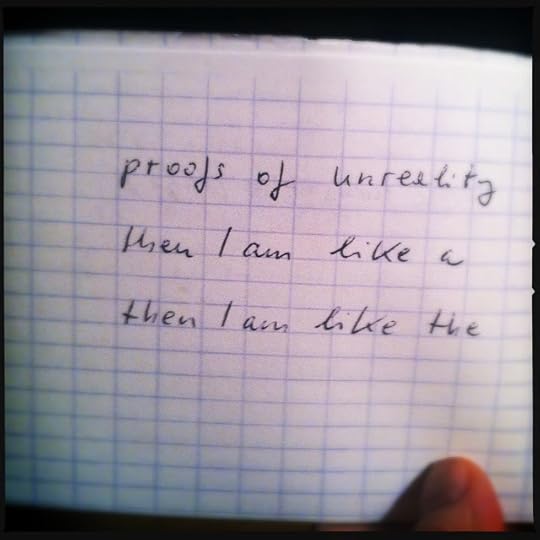 proofs of unreality
then I am like a
then I am like the